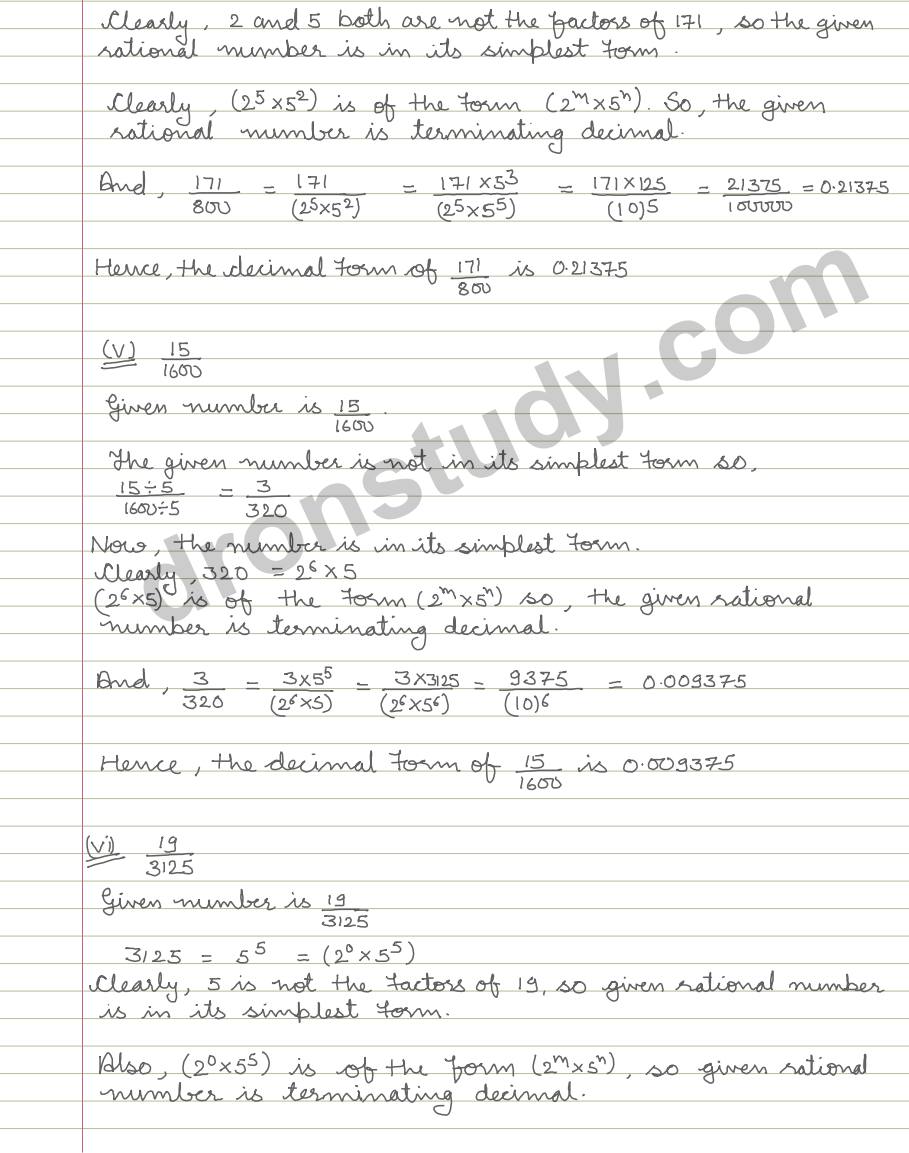 Clearly, 2 and 5 both are not the factors of 171, so the given
rational number is in its simplest form.
Clearly, (2⁵×5²) is of the form (2ᵐ×5ⁿ). So, the given
rational number is terminating decimal.
And, 171/800 = 171/(2⁵×5²) = 171×5³/(2⁵×5⁵) = 171×125/(10)⁵ = 21375/100000 = 0.21375
Hence, the decimal form of 171/800 is 0.21375
(V) 15/1600
Given number is 15/1600.
The given number is not in its simplest form so,
15÷5/1600÷5 = 3/320
Now, the number is in its simplest form.
Clearly, 320 = 2⁶×5
(2⁶×5) is of the form (2ᵐ×5ⁿ) so, the given rational
number is terminating decimal.
And, 3/320 = 3×5⁵/(2⁶×5) = 3×3125/(2⁶×5⁶) = 9375/(10)⁶ = 0.009375
Hence, the decimal form of 15/1600 is 0.009375
(Vi) 19/3125
Given number is 19/3125
3125 = 5⁵ = (2⁰×5⁵)
Clearly, 5 is not the factors of 19, so given rational number
is in its simplest form.
Also, (2⁰×5⁵) is of the form (2ᵐ×5ⁿ), so given rational
number is terminating decimal.
dronstudy.com